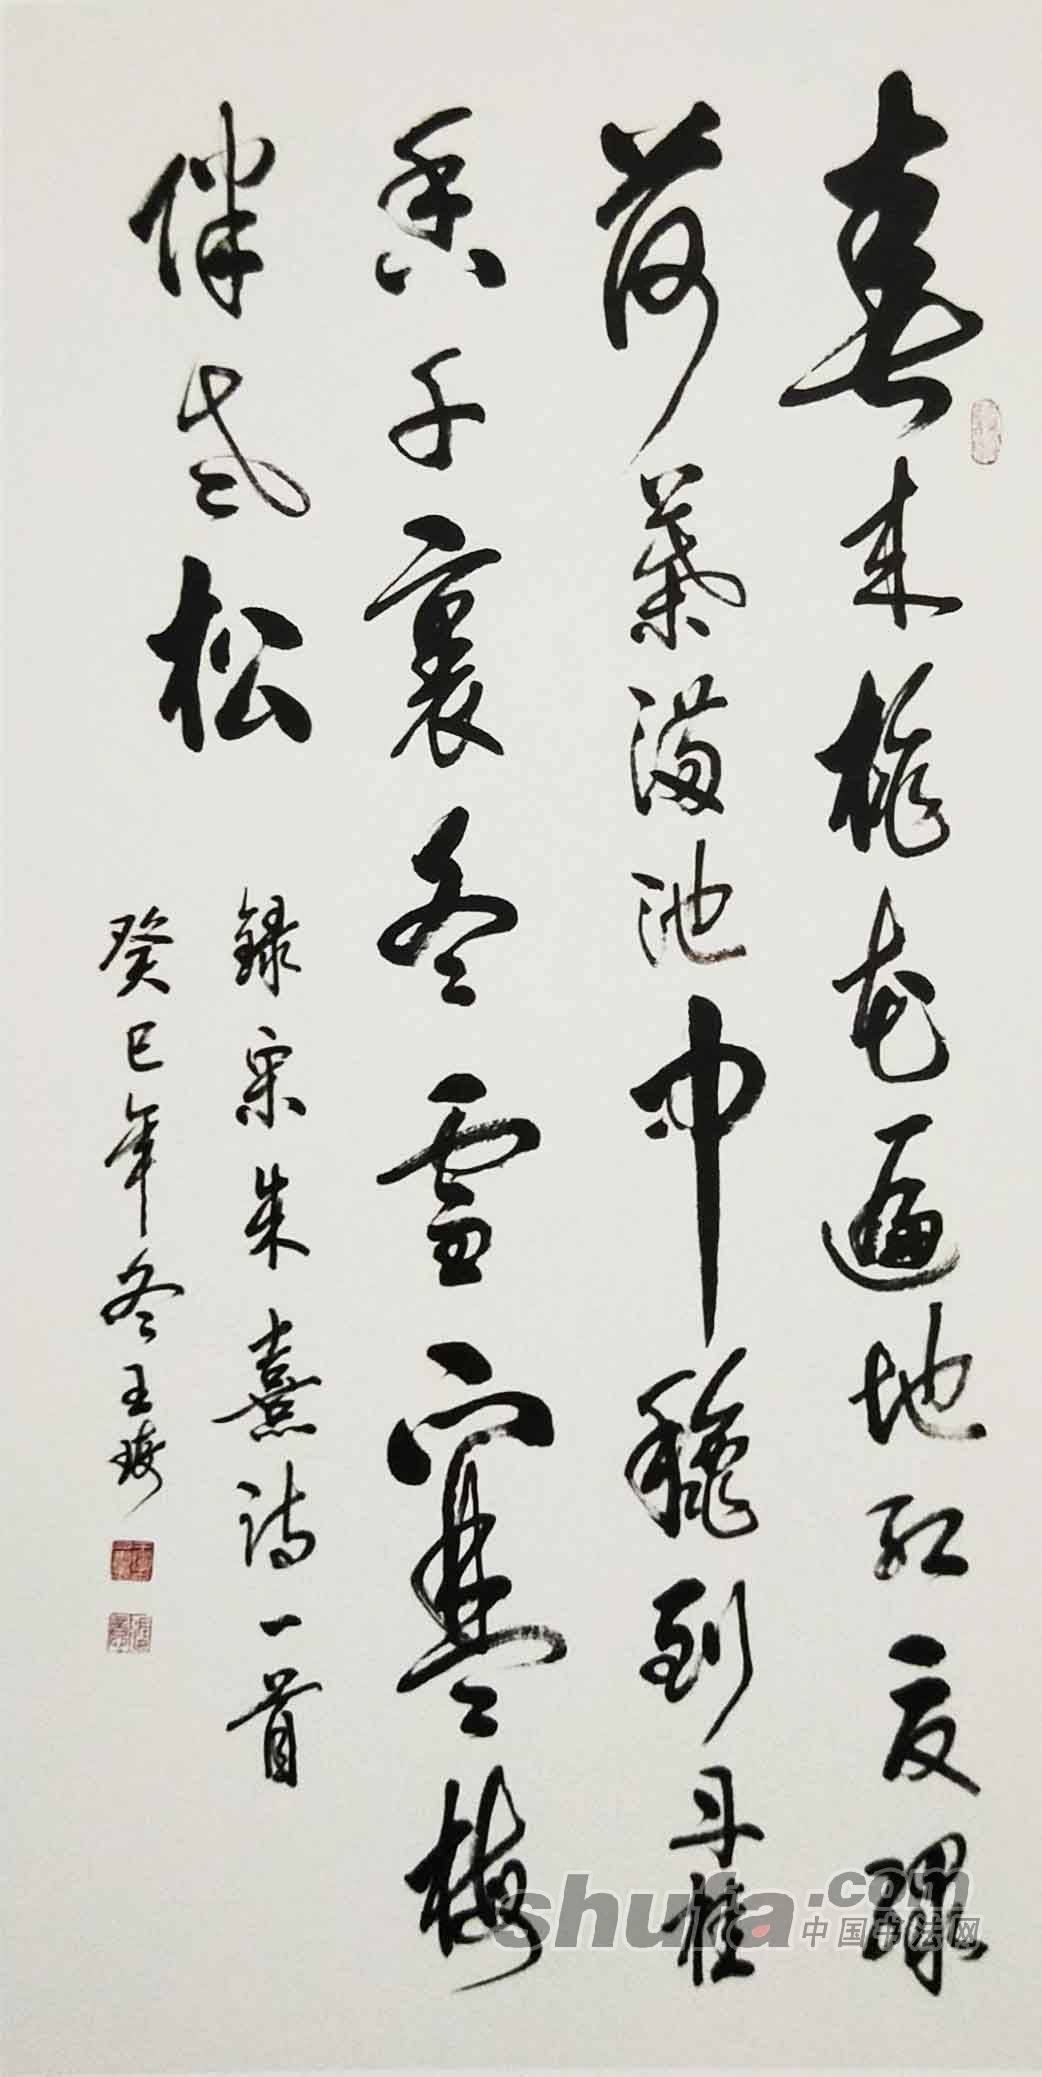 春来桃花遍地红夏躍
荷葉满池中穐到丹桂
香千裏冬雪寒梅
伴老松
録宋朱熹诗一首
癸巳年冬王
shufa.com
中国书法网